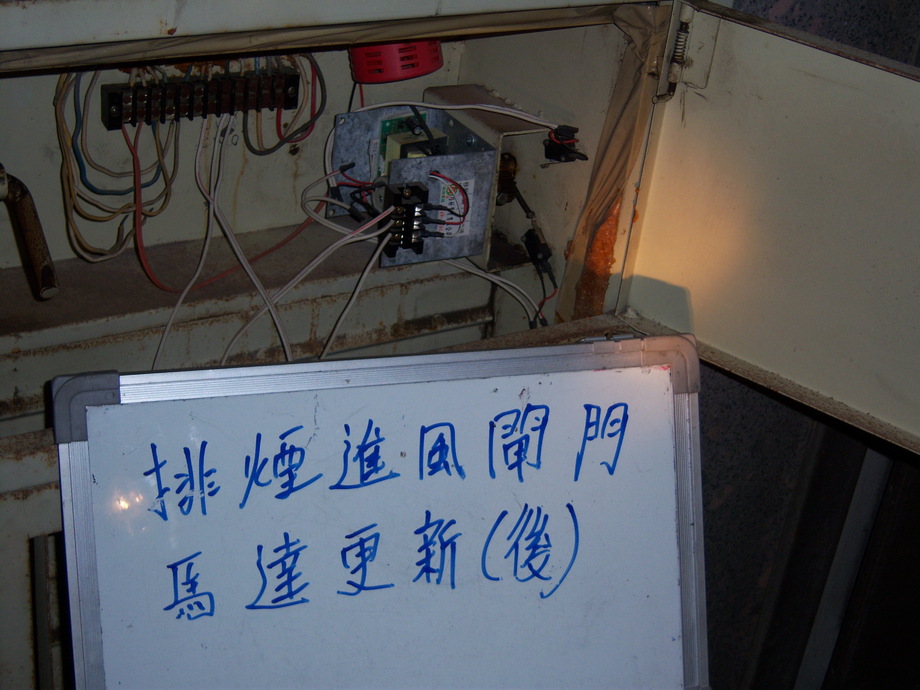 排煙進風閘門
馬達更新(後)